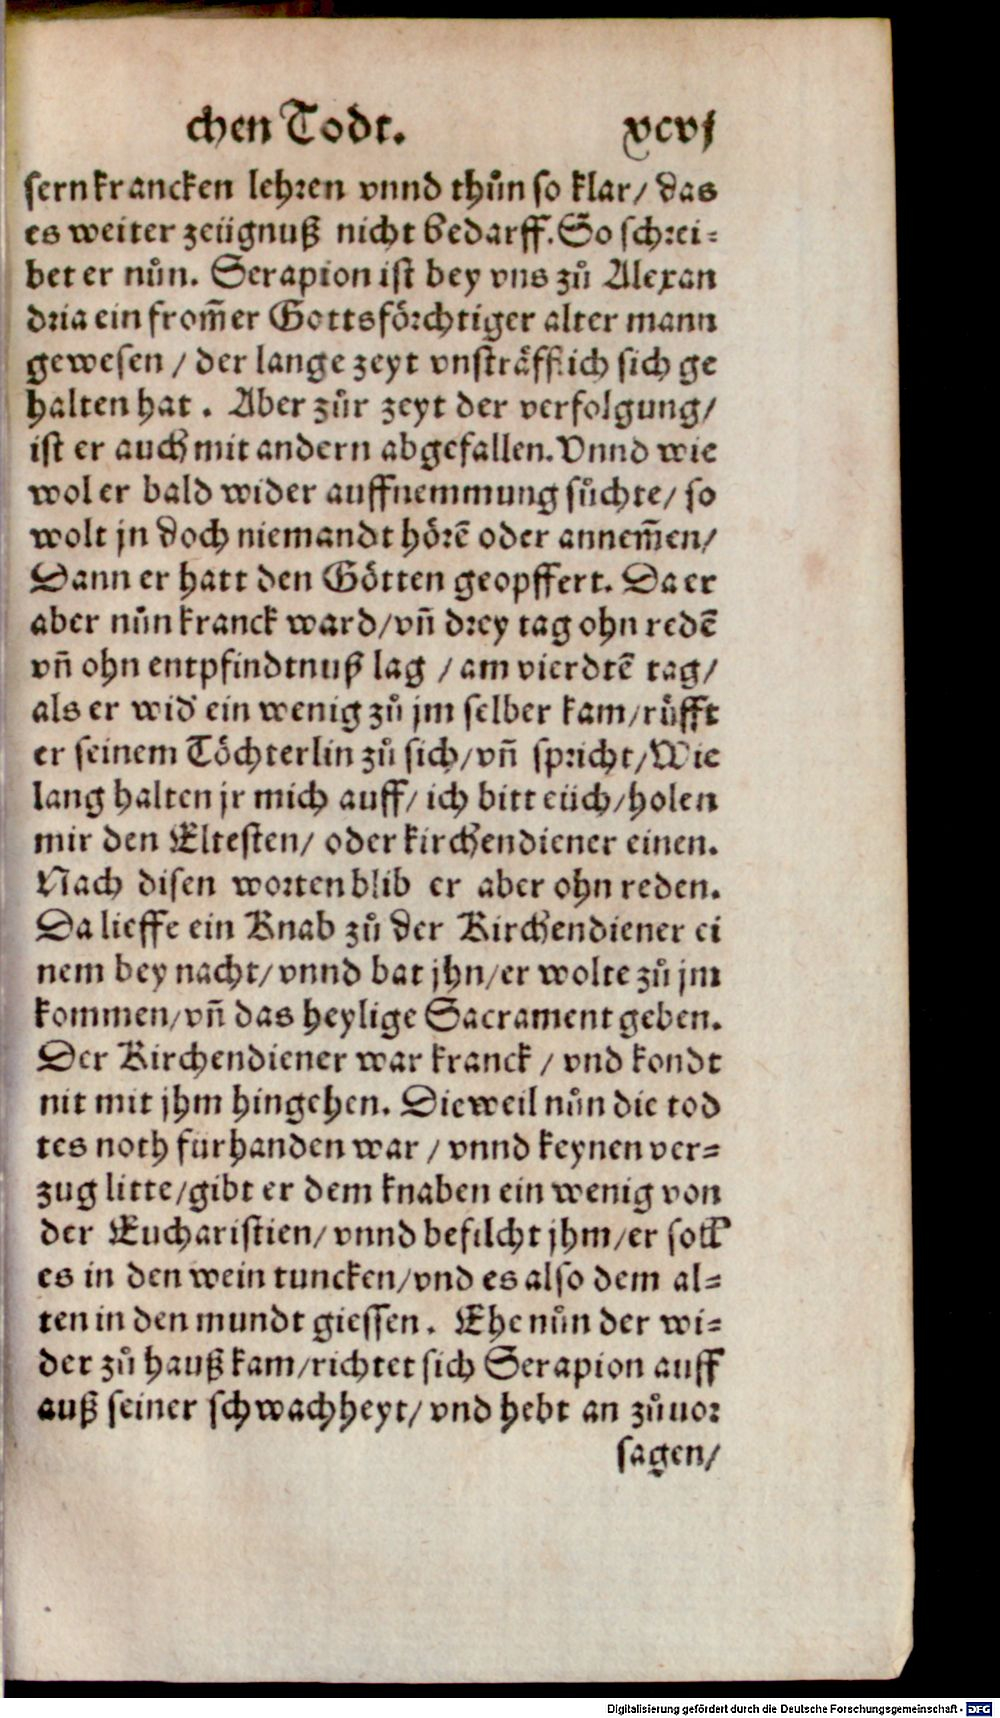 chen Todt. xcvj
sern krancken lehren vnnd thůn so klar/ das
es weiter zeügnuß nicht bedarff. So schrei-
bet er nůn. Serapion ist bey vns zů Alexan
dria ein from̃er Gottsförchtiger alter mann
gewesen / der lange zeyt vnsträfflich sich ge
halten hat. Aber zůr zeyt der verfolgung/
ist er auch mit andern abgefallen. Vnnd wie
wol er bald wider auffnemmung sůchte/ so
wolt jn doch niemandt hörẽ oder annem̃en/
Dann er hatt den Götten geopffert. Da er
aber nůn kranck ward/ vñ drey tag ohn redẽ
vñ ohn entpfindtnuß lag / am vierdtẽ tag/
als er wid' ein wenig zů jm selber kam/ růfft
er seinem Töchterlin zů sich/ vñ spricht/ Wie
lang halten jr mich auff/ ich bitt eüch/ holen
mir den Eltesten/ oder kirchendiener einen.
Nach disen worten blib er aber ohn reden.
Da lieffe ein Knab zů der Kirchendiener ei
nem bey nacht/ vnnd bat jhn/ er wolte zů jm
kommen/ vñ das heylige Sacrament geben.
Der Kirchendiener war kranck / vnd kondt
nit mit jhm hingehen. Dieweil nůn die tod
tes noth fürhanden war / vnnd keynen ver-
zug litte/ gibt er dem knaben ein wenig von
der Eucharistien/ vnnd befilcht jhm/ er soll
es in den wein tuncken/ vnd es also dem al-
ten in den mundt giessen. Ehe nůn der wi-
der zů hauß kam/ richtet sich Serapion auff
auß seiner schwachheyt/ vnd hebt an zůuor
sagen/
Digitalisierung gefördert durch die Deutsche Forschungsgemeinschaft - DFG